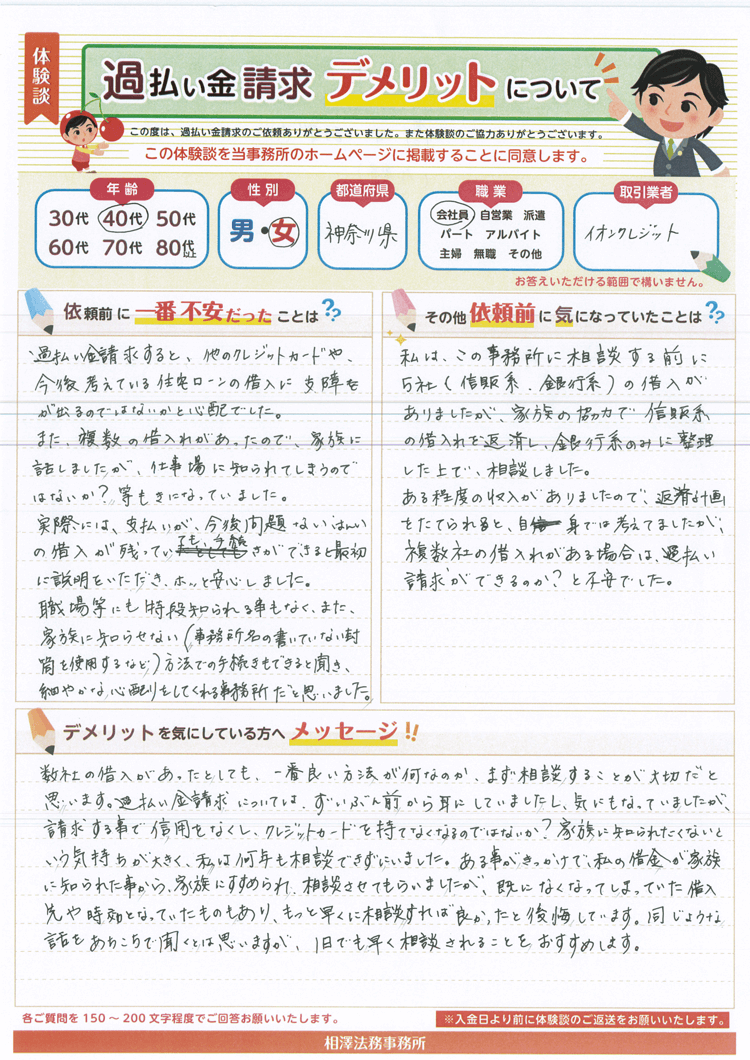 体験談
過払い金請求 デメリットについて
この度は、過払い金請求のご依頼ありがとうございました。また体験談のご協力ありがとうございます。
この体験談を当事務所のホームページに掲載することに同意します。
年齢
30代 40代 50代
60代 70代 80代以上
性別
男・女
都道府県
神奈川県
職業
会社員 自営業 派遣
パート アルバイト
主婦 無職 その他
取引業者
イオンクレジット
お答えいただける範囲で構いません。
依頼前に一番不安だったことは??
過払い金請求すると、他のクレジットカードや、
今後考えている住宅ローンの借入に支障を
が出るのではないかと心配でした。
また、複数の借入れがあったので、家族に
話しましたが、仕事場に知られてしまうので
はないか?等もきになっていました。
実際には、支払いが、今後問題ないはんい
の借入が残っていても、手続きができると最初
に説明をいただき、ホッと安心しました。
職場等にも特段知られる事もなく、また、
家族に知らせない(事務所名の書いていない封
筒を使用するなど)方法での手続きもできると聞き、
細やかな心配りをしてくれる事務所だと思いました。
その他依頼前に気になっていたことは??
私は、この事務所に相談する前に
5社(信販系、銀行系)の借入が
ありましたが、家族の協力で信販系
の借入れを返済し、銀行系のみに整理
した上で、相談しました。
ある程度の収入がありましたので、返済計画
をたてられると、自身では考えてましたが、
複数社の借入れがある場合は、過払い
請求ができるのか?と不安でした。
デメリットを気にしている方へメッセージ!!
数社の借入があったとしても、一番良い方法が何なのか、まず相談することが大切だと
思います。過払い金請求については、ずいぶん前から耳にしていましたし、気にもなっていましたが、
請求する事で信用をなくし、クレジットカードを持てなくなるのではないか?家族に知られたくないと
いう気持ちが大きく、私は何年も相談できずにいました。ある事がきっかけで、私の借金が家族
に知られた事から、家族にすすめられ、相談させてもらいましたが、既になくなってしまっていた借入
先や時効となっていたものもあり、もっと早くに相談すれば良かったと後悔しています。同じような
話をあちこちで聞くとは思いますが、1日でも早く相談されることをおすすめします。
各ご質問を150〜200文字程度でご回答お願いいたします。
※入金日より前に体験談のご返送をお願いいたします。
相澤法務事務所